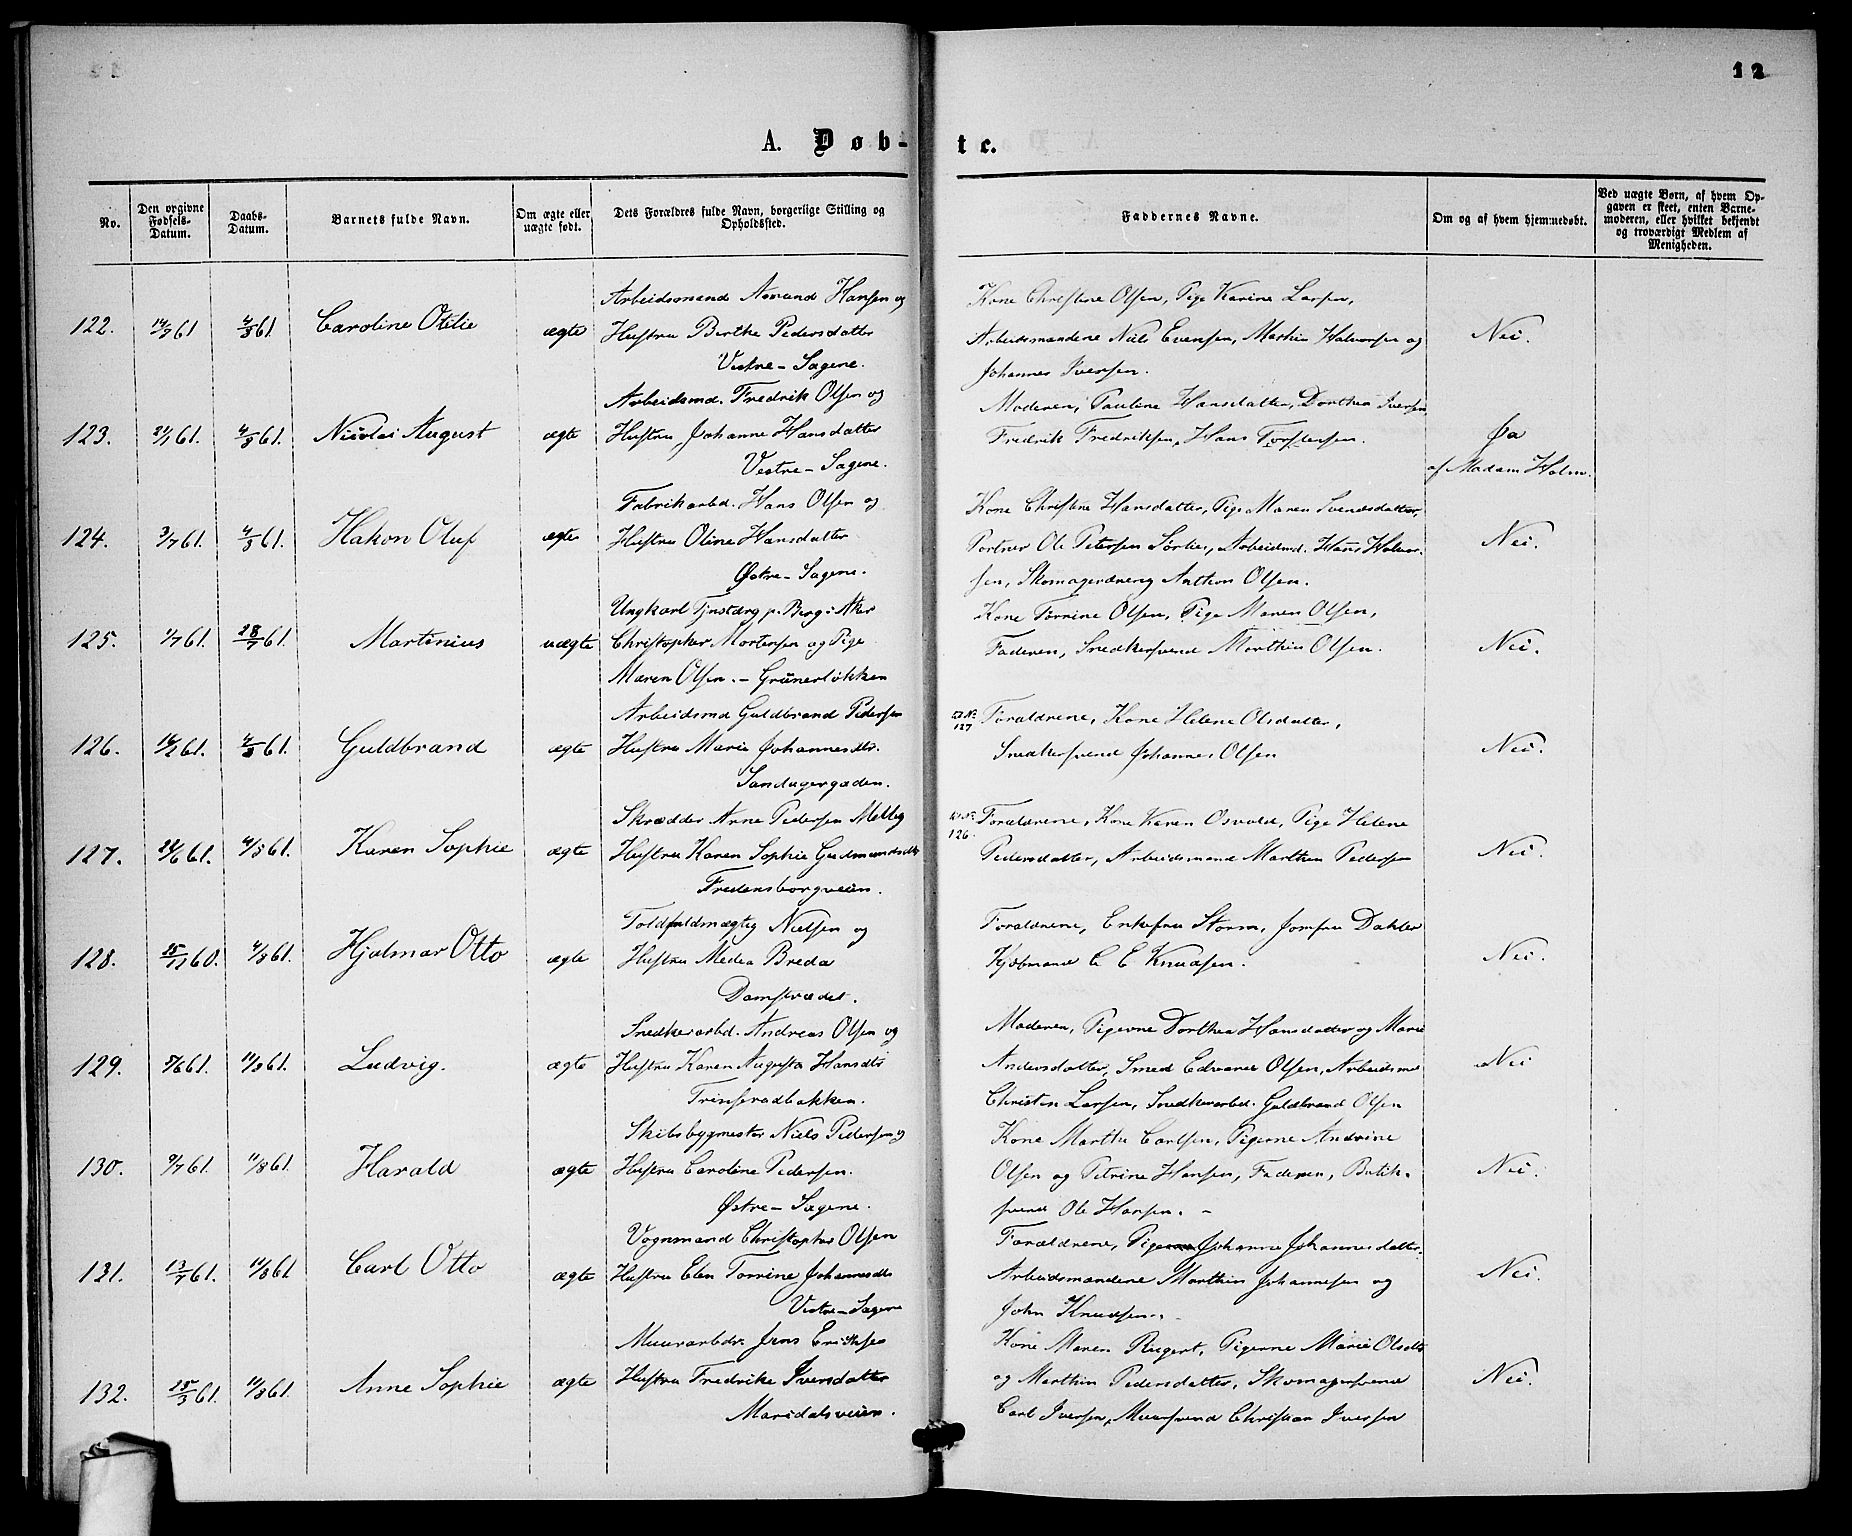 12
A. Døb-te.
No.
Den opgivne Fødsels-Datum.
Daabs-Datum.
Barnets fulde Navn.
Om ægte eller uægte født.
Dets Forældres fulde Navn, borgerlige Stilling og Opholdssted.
Faddernes Navne.
Om og af hvem hjemmedøbt.
Ved uægte Børn, af hvem Opgaven er skeet, enten Barnemoderen, eller hvilket bekjendt og troværdigt Medlem af Menigheden.
122. 14/7 61 4/8 61. Caroline Otilie ægte
Arbeidsmand Amund Hansen og
Hustru Berthe Pedersdatter
Vestre-Sagene.
Kone Christine Olsen, Pige Karine Larsen,
Arbeidsmændene Niels Evensen, Martin Halvorsen og
Johannes Iversen.
Nei.
123. 61. 4/8 61. Nicolai August ægte
Arbeidsmd. Fredrik Olsen og
Hustru Johanne Hansdatter
Vestre-Sagene.
Moderen, Pauline Hansdatter, Dorthea Iversen
Fredrik Fredriksen, Hans Torstensen.
Ja
af Madam Holm.
124. 3/7 61. 4/8 61. Hakon Oluf ægte
Fabrikarbd. Hans Olsen og
Hustru Oline Hansdatter
Østre-Sagene.
Kone Christine Hansdatter, Pige Maren Svendsdatter,
Portner Ole Petersen Sørlie, Arbeidsmd. Hans Halvor-
sen, Skomagerdreng Anthon Olsen.
Nei.
125. 1/7 61. 28/7 61. Martinius uægte
Ungkarl Tjnstdrg p. Berg i Aker
Christopher Mortensen og Pige
Maren Olsen. - Grünerløkken
Kone Torine Olsen, Pige Maren Olsen,
Faderen, Snedkersvend Marthin Olsen.
Nei.
126. 61. 4/8 61. Guldbrand ægte
Arbeidsmd Guldbrand Pedersen
Hustru Marie Johannesdtr.
Sandagergaden.
127
Forældrene, Kone Helene Olsdatter,
Snedkersvend Johannes Olsen
Nei.
127. 24/6 61. 4/8 61. Karen Sophie ægte
Skrædder Arne Pedersen Melby
Hustru Karen Sophie Gudmundsdtr
Fredensborgveien.
126.
Forældrene, Kone Karen Osvold, Pige Helene
Pedersdatter, Arbeidsmand Marthin Pedersen
Nei.
128. 25/12 60. 4/8 61. Hjalmar Otto ægte
Toldfuldmægtig Nielsen og
Hustru Medea Breda
Damstrædet.
Forældrene, Enkefru Storm, Jomfru Dahler
Kjøbmand C E Knudsen.
Nei.
129. 5/6 61. 11/8 61. Ludvig. ægte
Snedkerarbd. Andreas Olsen og
Hustru Karen Augusta Hansdtr
Trinserudbakken.
Moderen, Pigerne Dorthea Hansdatter og Marie
Andersdatter, Smed Edvard Olsen, Arbeidsmd
Christen Larsen, Snedkerarbd. Guldbrand Olsen
Nei
130. 9/7 61. 11/8 61. Harald ægte
Skibsbygmester Niels Pedersen og
Hustru Caroline Pedersen.
Østre-Sagene.
Kone Marthe Carlsen, Pigerne Andrine
Olsen og Petrine Hansen, Faderen, Butik-
svend Ole Hansen. -
Nei.
131. 13/7 61. 11/8 61 Carl Otto ægte
Vognmand Christopher Olsen
Hustru Elen Torrine Johannesdtr
Vestre-Sagene
Forældrene, Pige Johanne Johannesdatter.
Arbeidsmændene Marthin Johannesen og
John Knudsen.
Nei.
132. 25/3 61. 11/8 61. Anne Sophie ægte
Muurarbdr. Jens Eriksen
Hustru Fredrike Iversdatter
Marsdalsveien.
Kone Maren Rugert, Pigerne Marie Olsdtr
og Marthin Pedersdatter, Skomagersvend
Carl Iversen, Muursvend Christian Iversen
Nei.